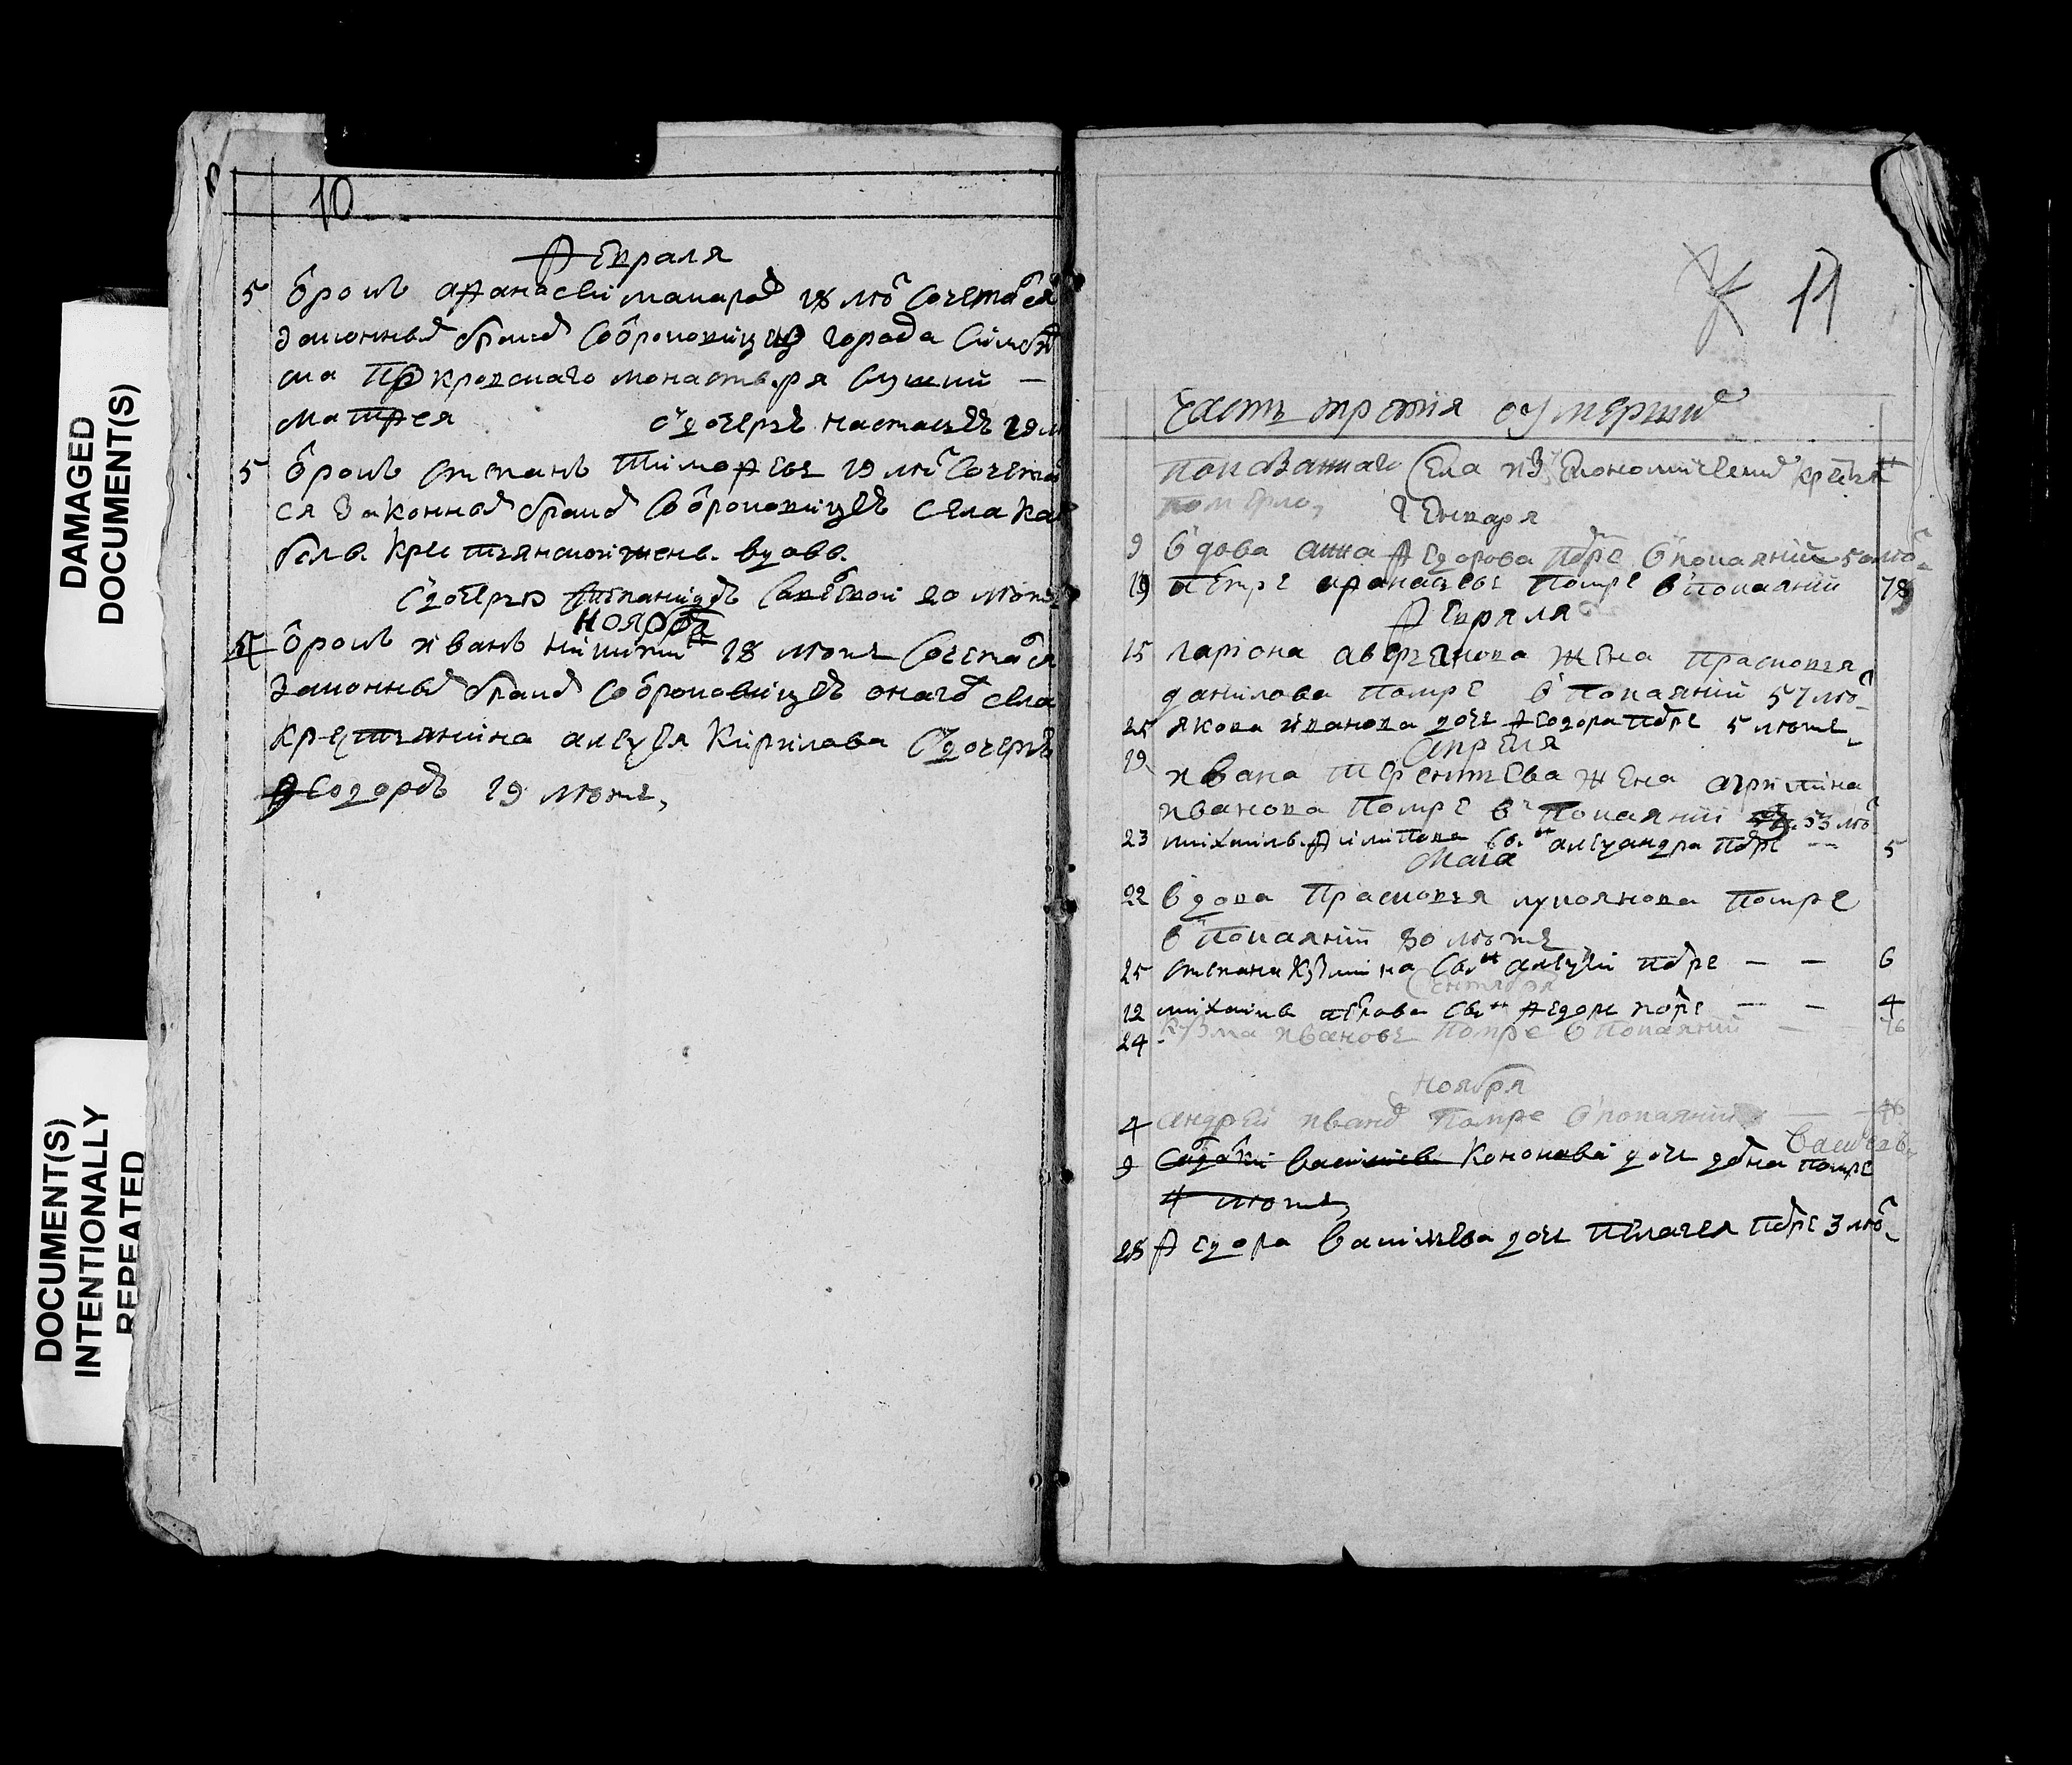 DAMAGED
DOCUMENT(S)
DOCUMENT(S)
INTENTIONALLY
REPEATED
10
Февраля
5 отрокъ афанасеи макаров 18 лѣт сочетался
законным браком сотроковицею города Симбир
ска покровскаго монастыря служки
Матфея с дочерью настасьею 19 л
5 отрокъ степанъ Тимофеевъ 19 лѣт сочетал
ся законным браком сотроковицею села
крестьянской жены вдовы
с дочерью степанидою 20 лѣтъ
Ноября
отрокъ иванъ никитин 18 лѣтъ сочетался
законным браком сотроковицею онаго села
крестьянина алеѯея Кирилова с дочерью
Феодорою 19 лѣтъ
11
Часть третия о умерших
показаннаго села из економических крестьян
померло,
Генваря
9 вдова анна Федорова помре в покаянии 50 лѣт
19 петръ афанасьевъ помре в покаянии 78
Февраля
15 лариона аверьянова жена прасковья
данилова помре в покаянии 57 лѣт
25 якова иванова дочь Феодора помре 5 лѣтъ
апреля
19 ивана терентьева жена агрипина
иванова помре в покаянии 53 лѣт
23 михаилы филипова сынъ алеѯандра помре 5
Маиа
22 вдова прасковья лукоянова помре
в покаянии 80 лѣтъ
25 степана кузмина сынъ алеѯеи помре 6
Сентября
12 михаила петрова сынъ федоръ помре 4
24 кузма ивановъ помре в покаянии 76
Ноября
4 андреи иванов помре в покаянии
9 Кононова дочь помре
4 лѣтъ
28 Федора васильева дочь пелагея помре 3 лѣт